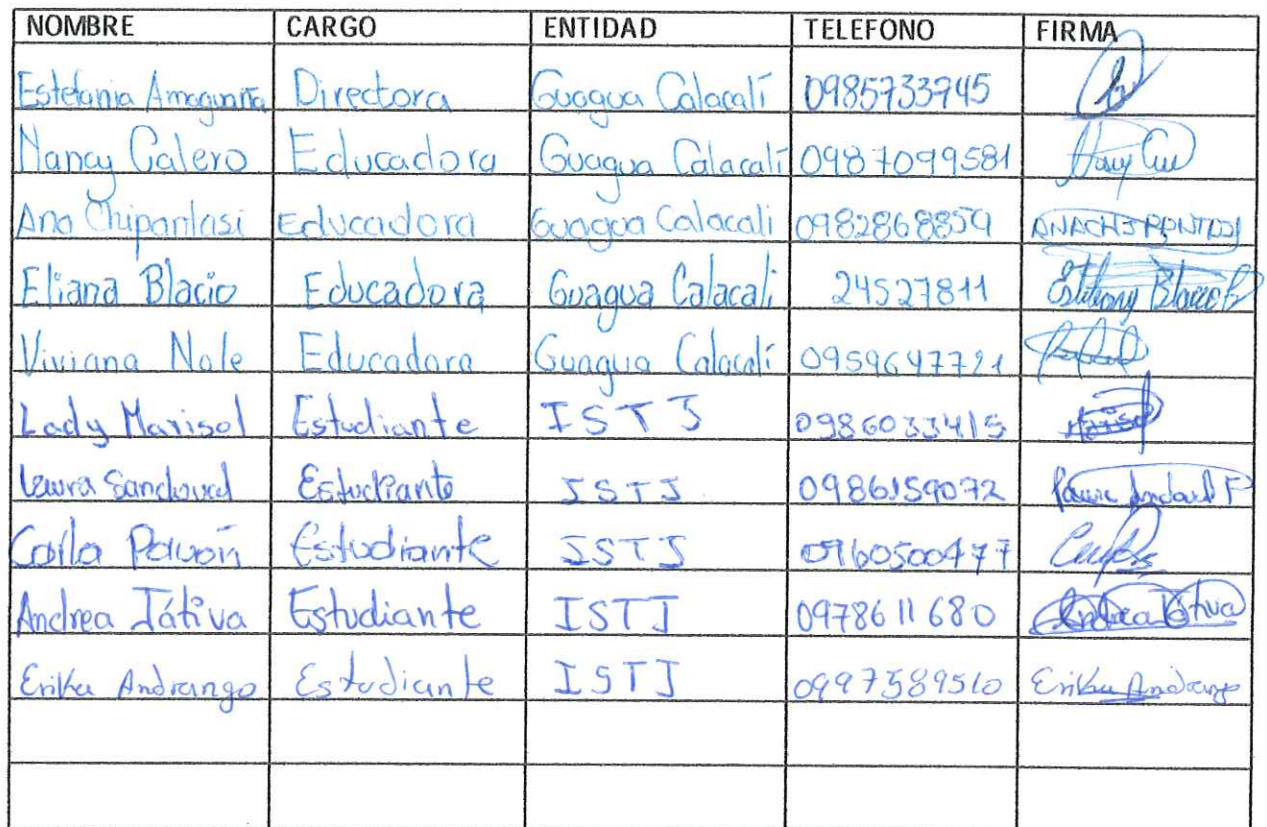 NOMBRE CARGO ENTIDAD TELEFONO FIRMA
Estefania Amaguaña Directora Guagua Calacalí 0985733745
Nancy Calero Educadora Guagua Calacalí 0987099581
Ana Chipantasi Educadora Guagua Calacali 0982868859
Eliana Blacio Educadora Guagua Calacali 24527811
Viviana Nole Educadora Guagua Calacalí 0959647721
Lady Marisol Estudiante ISTJ 0986033415
Laura Sandoval Estudiante ISTJ 0986159072
Carla Pavón Estudiante ISTJ 0960500477
Andrea Játiva Estudiante ISTJ 0978611680 Andrea Játiva
Erika Andrango Estudiante ISTJ 0997589510 Erika Andrango